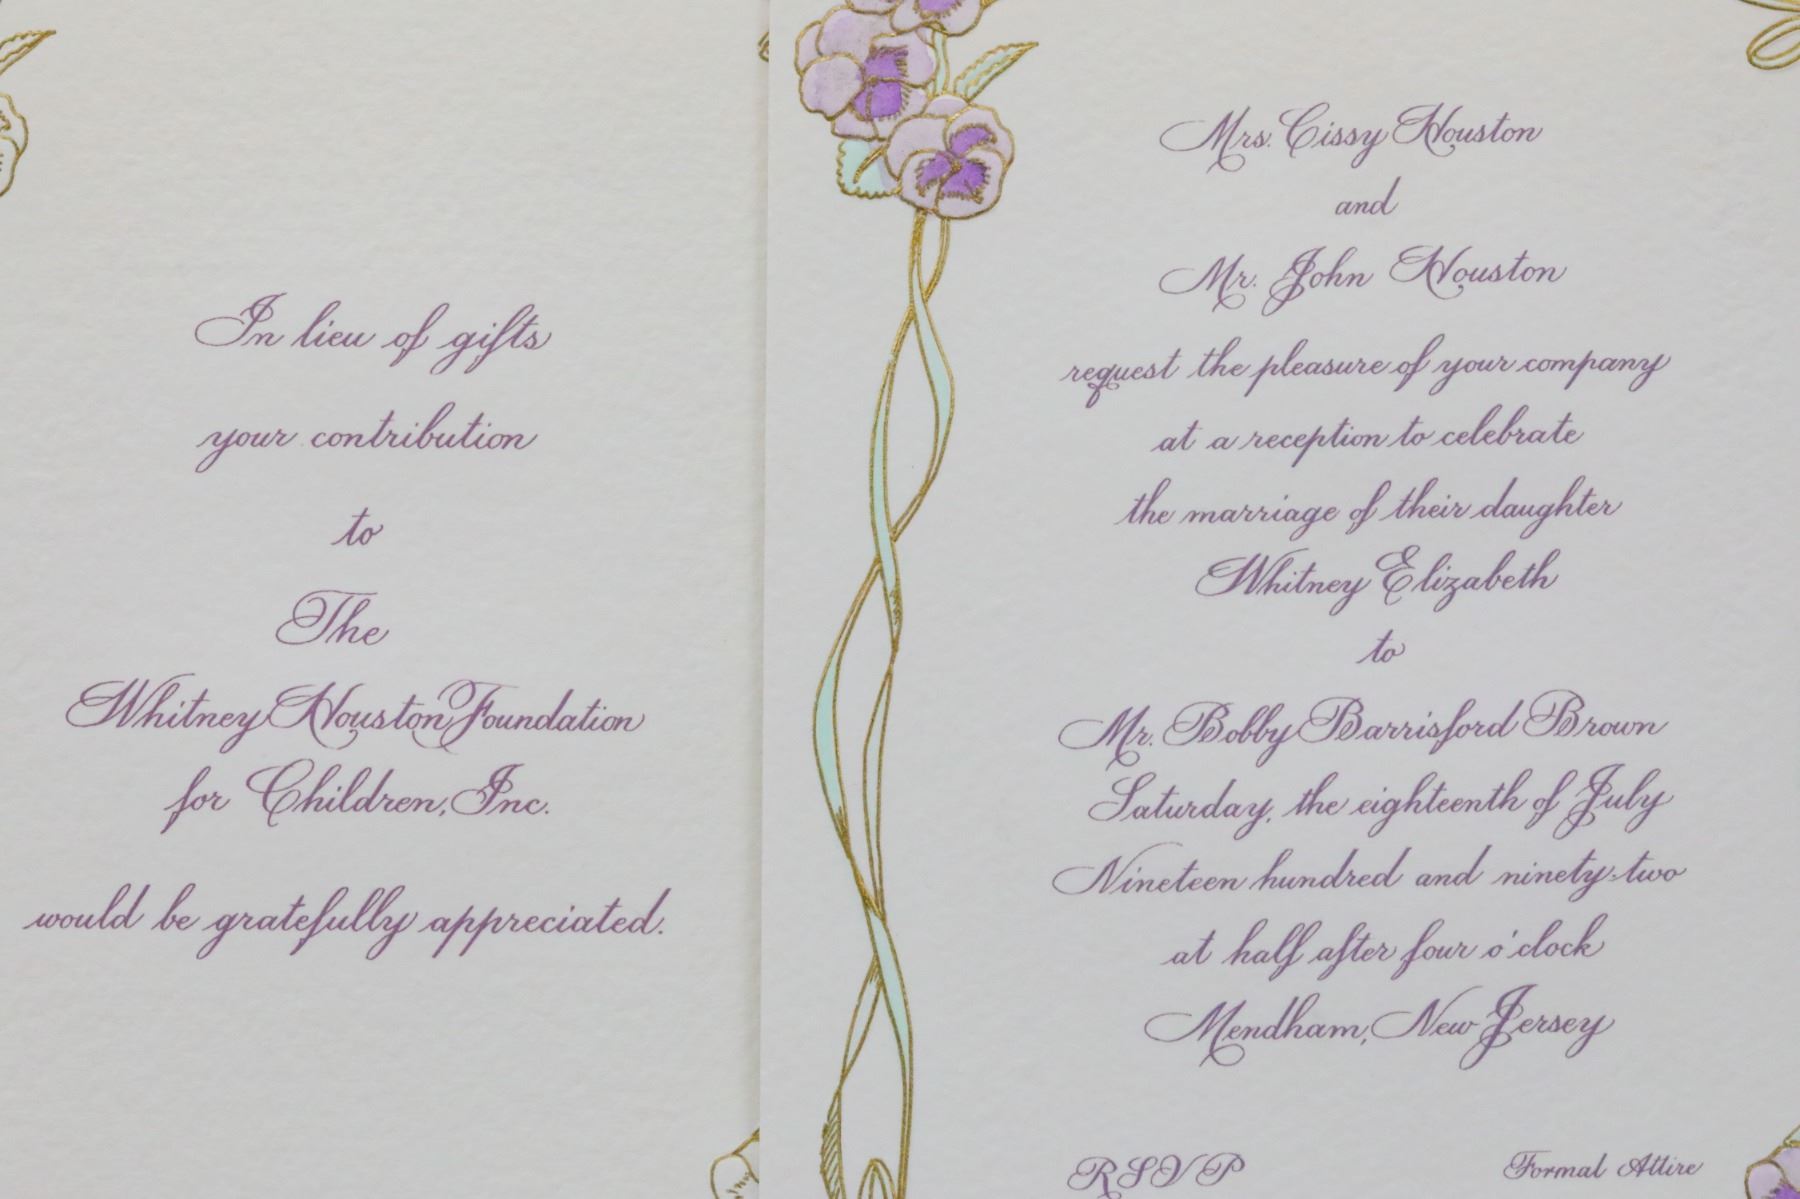 In lieu of gifts
your contribution
to
The
Whitney Houston Foundation
for Children, Inc.
would be gratefully appreciated.
Mrs. Cissy Houston
and
Mr. John Houston
request the pleasure of your company
at a reception to celebrate
the marriage of their daughter
Whitney Elizabeth
to
Mr. Bobby Barrisford Brown
Saturday, the eighteenth of July
Nineteen hundred and ninety-two
at half after four o'clock
Mendham, New Jersey
RSVP
Formal Attire